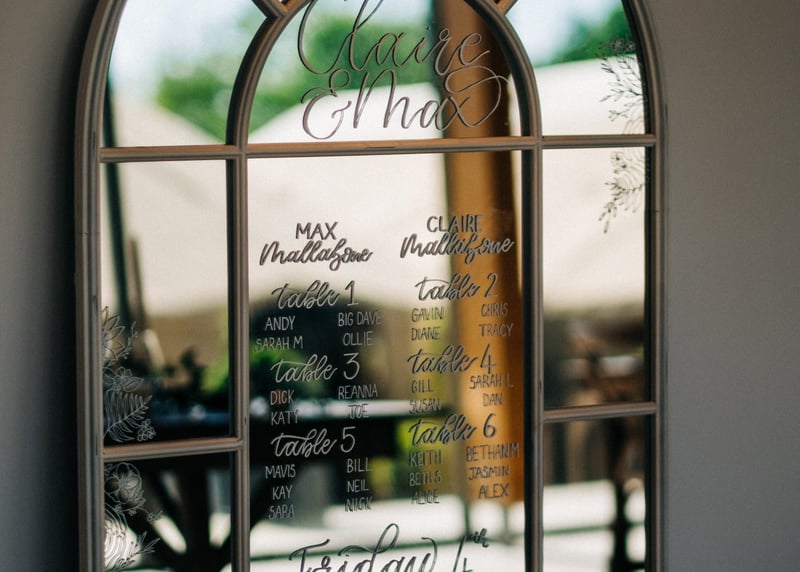 Claire
& Max
MAX CLAIRE
Mallabone Mallabone
table 1 table 2
ANDY BIG DAVE GAVIN CHRIS
SARAH M OLLIE DIANE TRACY
table 3 table 4
DICK REANNA GILL SARAH L
KATY JOE SUSAN DAN
table 5 table 6
MAVIS BILL KEITH BETHANM
KAY NEIL BETH S JASMIN
SARA NICK ALICE ALEX
Friday 4th